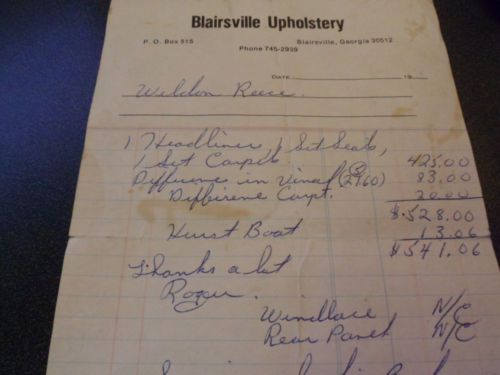 Blairsville Upholstery
P. O. Box 515 Blairsville, Georgia 30512
Phone 745-2939
DATE 19
Weldon Reece
1 Headliner, 1 Set Seats,
1 Set Carpet. 425.00
Difference in Vinal (2960) 83.00
Diffirene Carpt. 20.00
$528.00
Hurst Boot 13.06
$541.06
Thanks a lot
Roger.
Windlace N/C
Rear Panel N/C